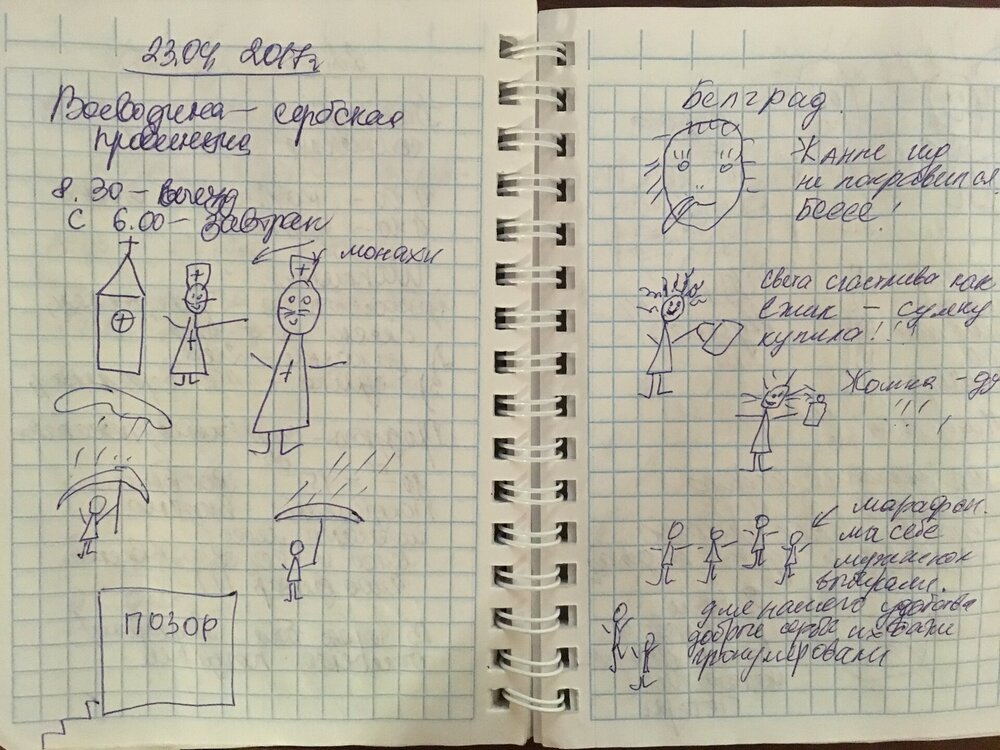 23.04 2017г
Воеводина — сербская
провинция
8.30 — выезд
с 6.00 — завтрак
монахи
ПОЗОР
Белград.
Жанне
не понравился
Бееее!
Света счастлива как
ёжик — сумку
купила!!!
Жомка - ду
!!!,
марафон.
мы себе
мужичков
выбирали.
для нашего удобства
добрые сербы их даже
пронумеровали